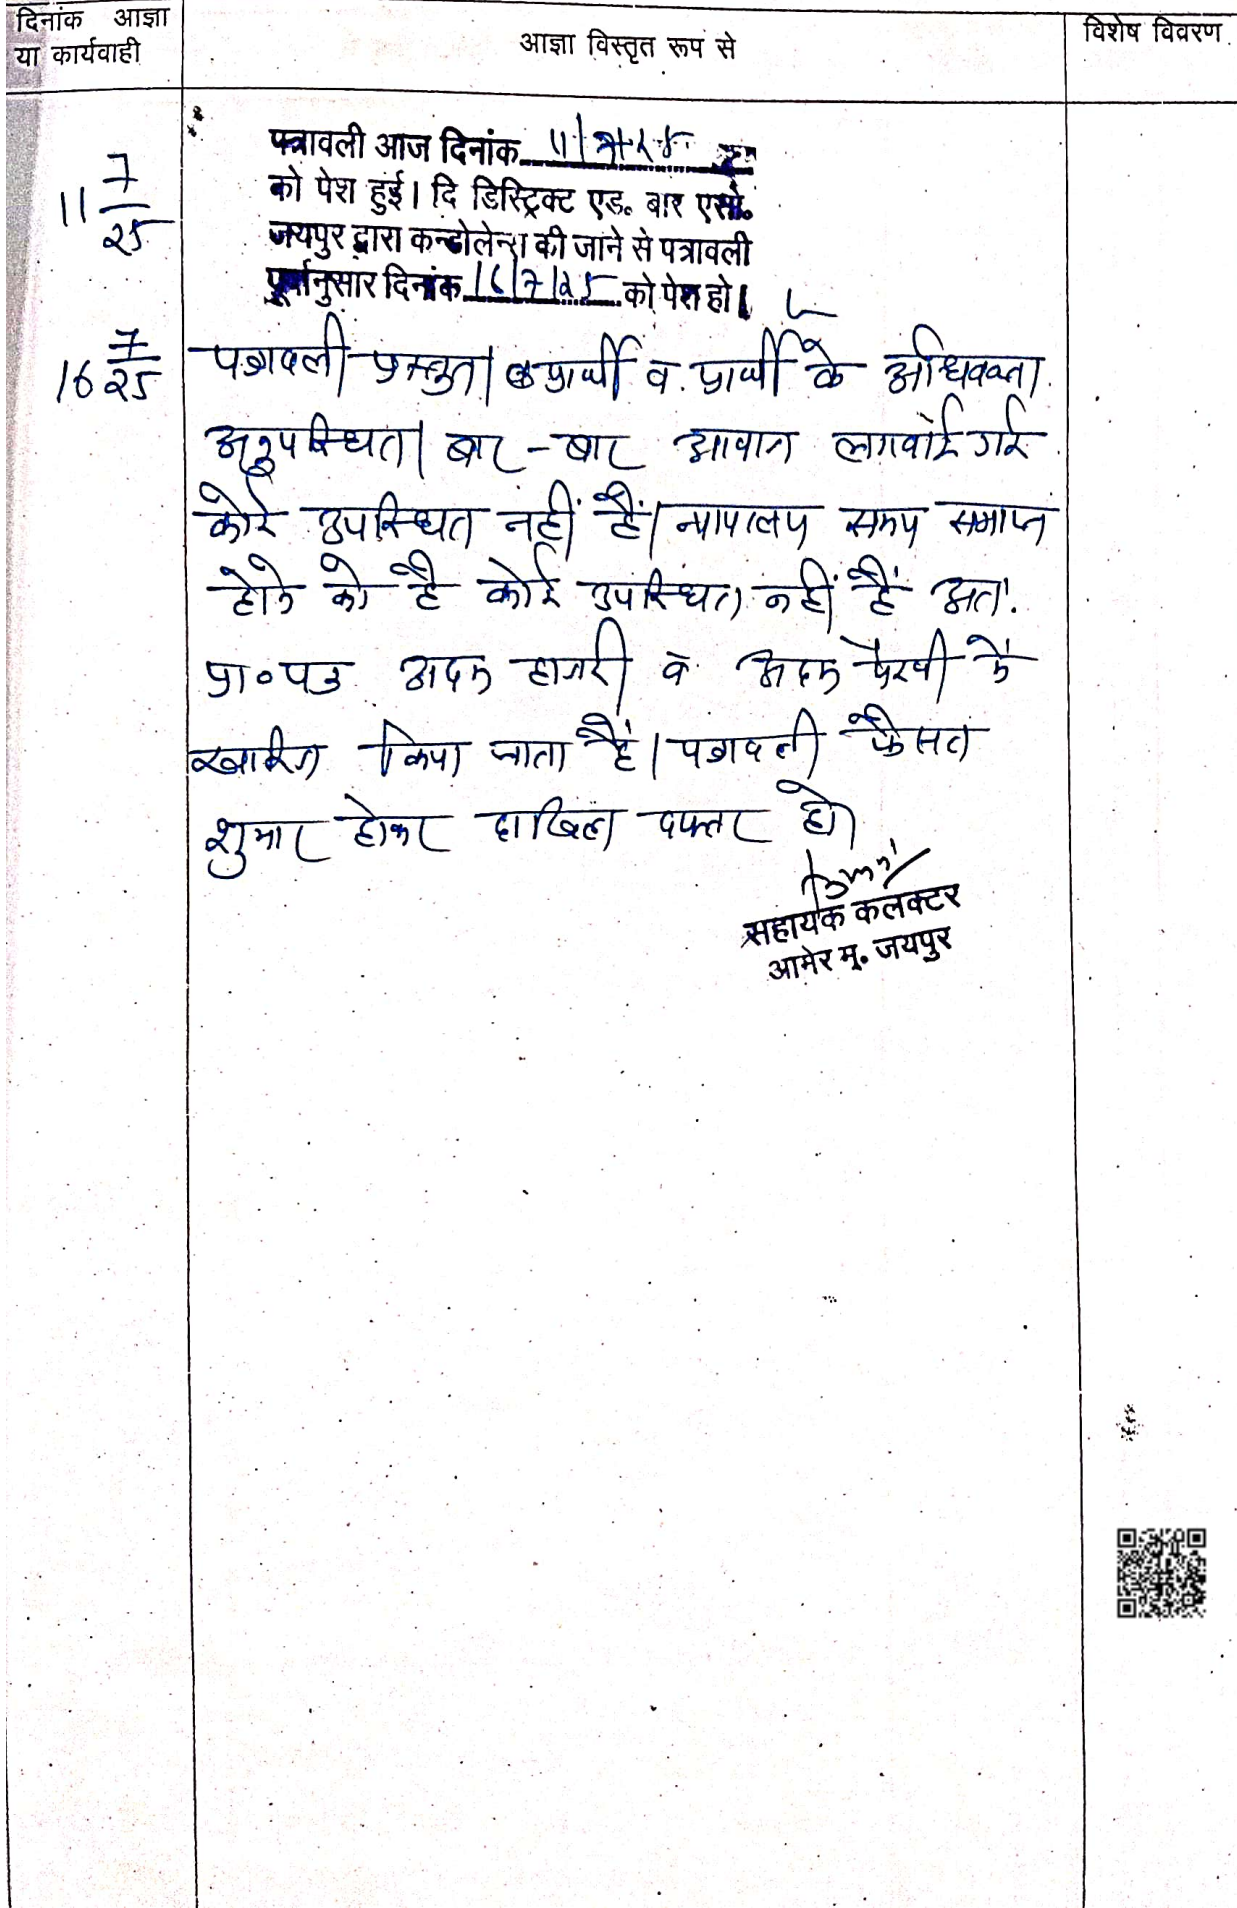 दिनांक आज्ञा
या कार्यवाही
आज्ञा विस्तृत रूप से
विशेष विवरण
11 7/25
पत्रावली आज दिनांक 11/7/25
को पेश हुई। दि डिस्ट्रिक्ट एड. बार एसो.
जयपुर द्वारा कन्डोलेन्स की जाने से पत्रावली
पूर्वानुसार दिनांक 16/7/25 को पेश हो।
16 7/25
पत्रावली प्रस्तुत। प्रार्थी व प्रार्थी के अधिवक्ता
अनुपस्थित। बार-बार आवाज लगवाई गई
कोई उपस्थित नहीं हैं। न्यायालय समय समाप्त
होने को है कोई उपस्थित नहीं हैं अतः
प्रा०पत्र अदम हाजरी व अदम पैरवी में
खारिज किया जाता हैं। पत्रावली फैसल
शुमार होकर दाखिल दफ्तर हो।
सहायक कलक्टर
आमेर मु. जयपुर